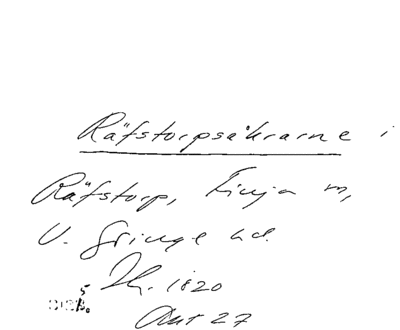 Räfstorpsåkrarne i
Räfstorp, Finja sn,
V. Göinge hd.
1820
Akt 27